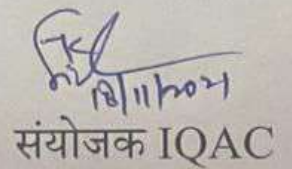 18/11/2021
संयोजक IQAC